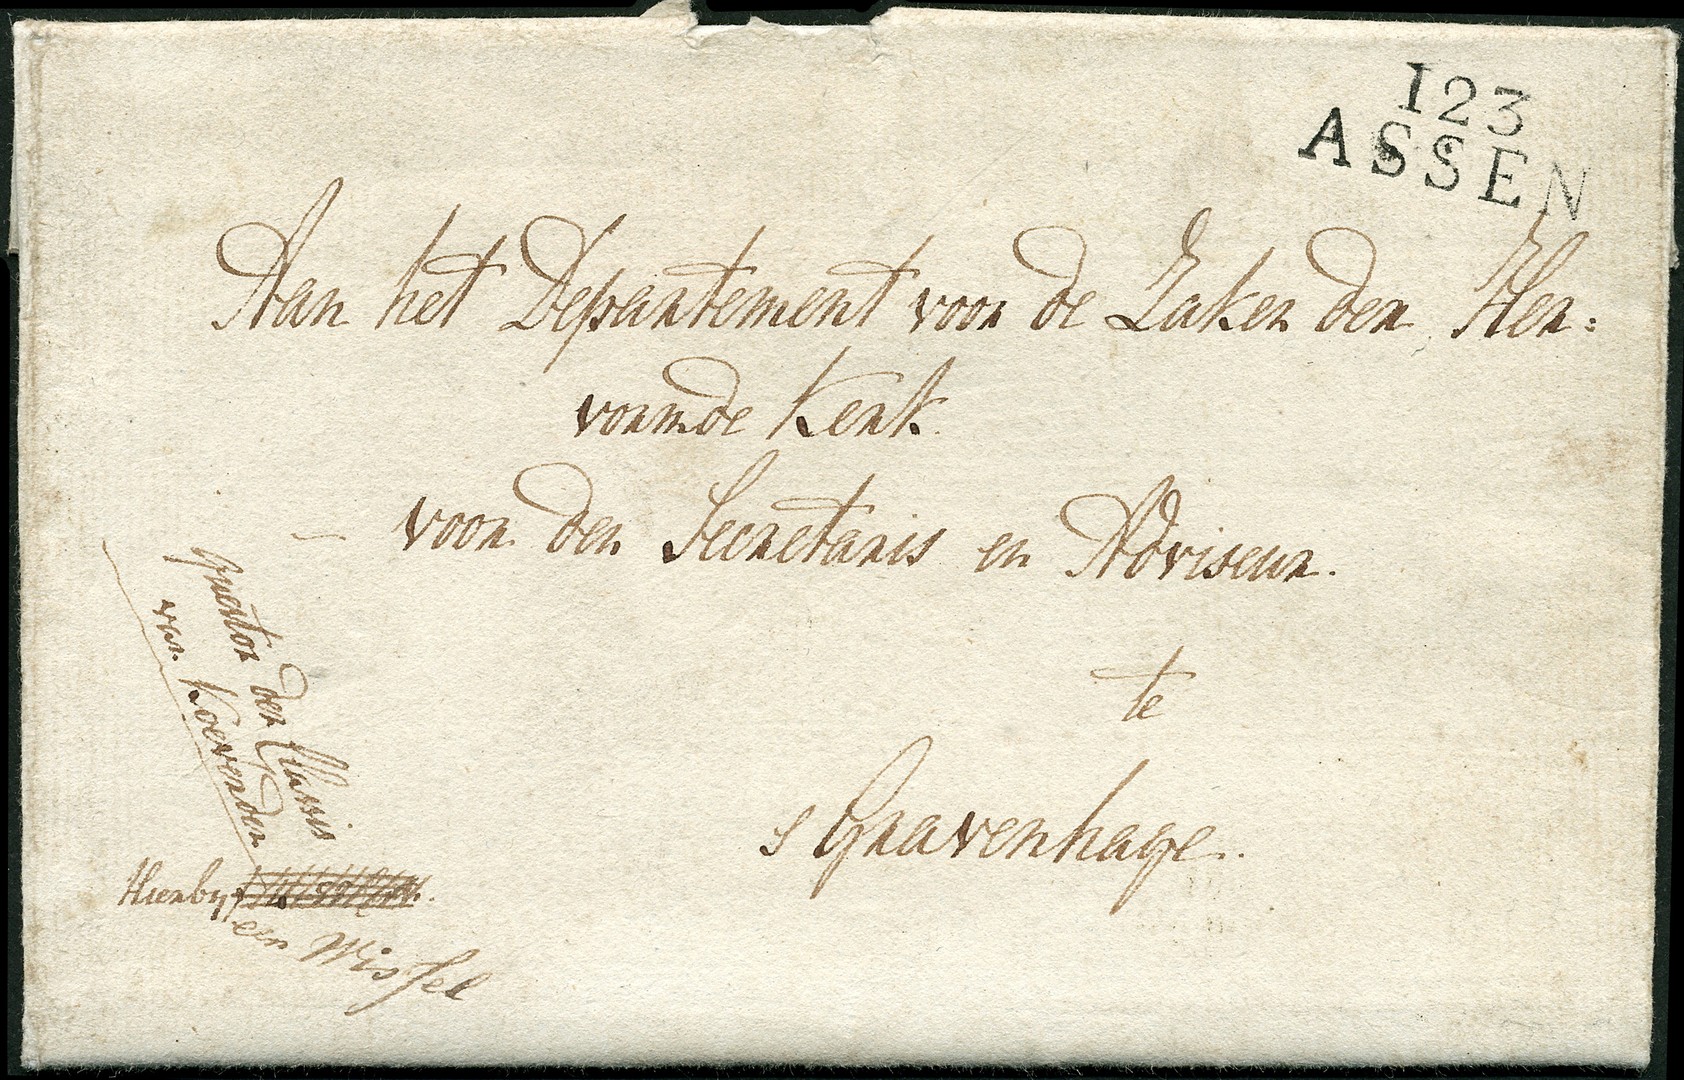 123
ASSEN
Aan het Departement voor de Zaken der Her:
vormde Kerk.
voor den Secretaris en Adviseur.
te
s Gravenhage.
quæstor der Classis
van Koevorden
Hierby
een Wissel